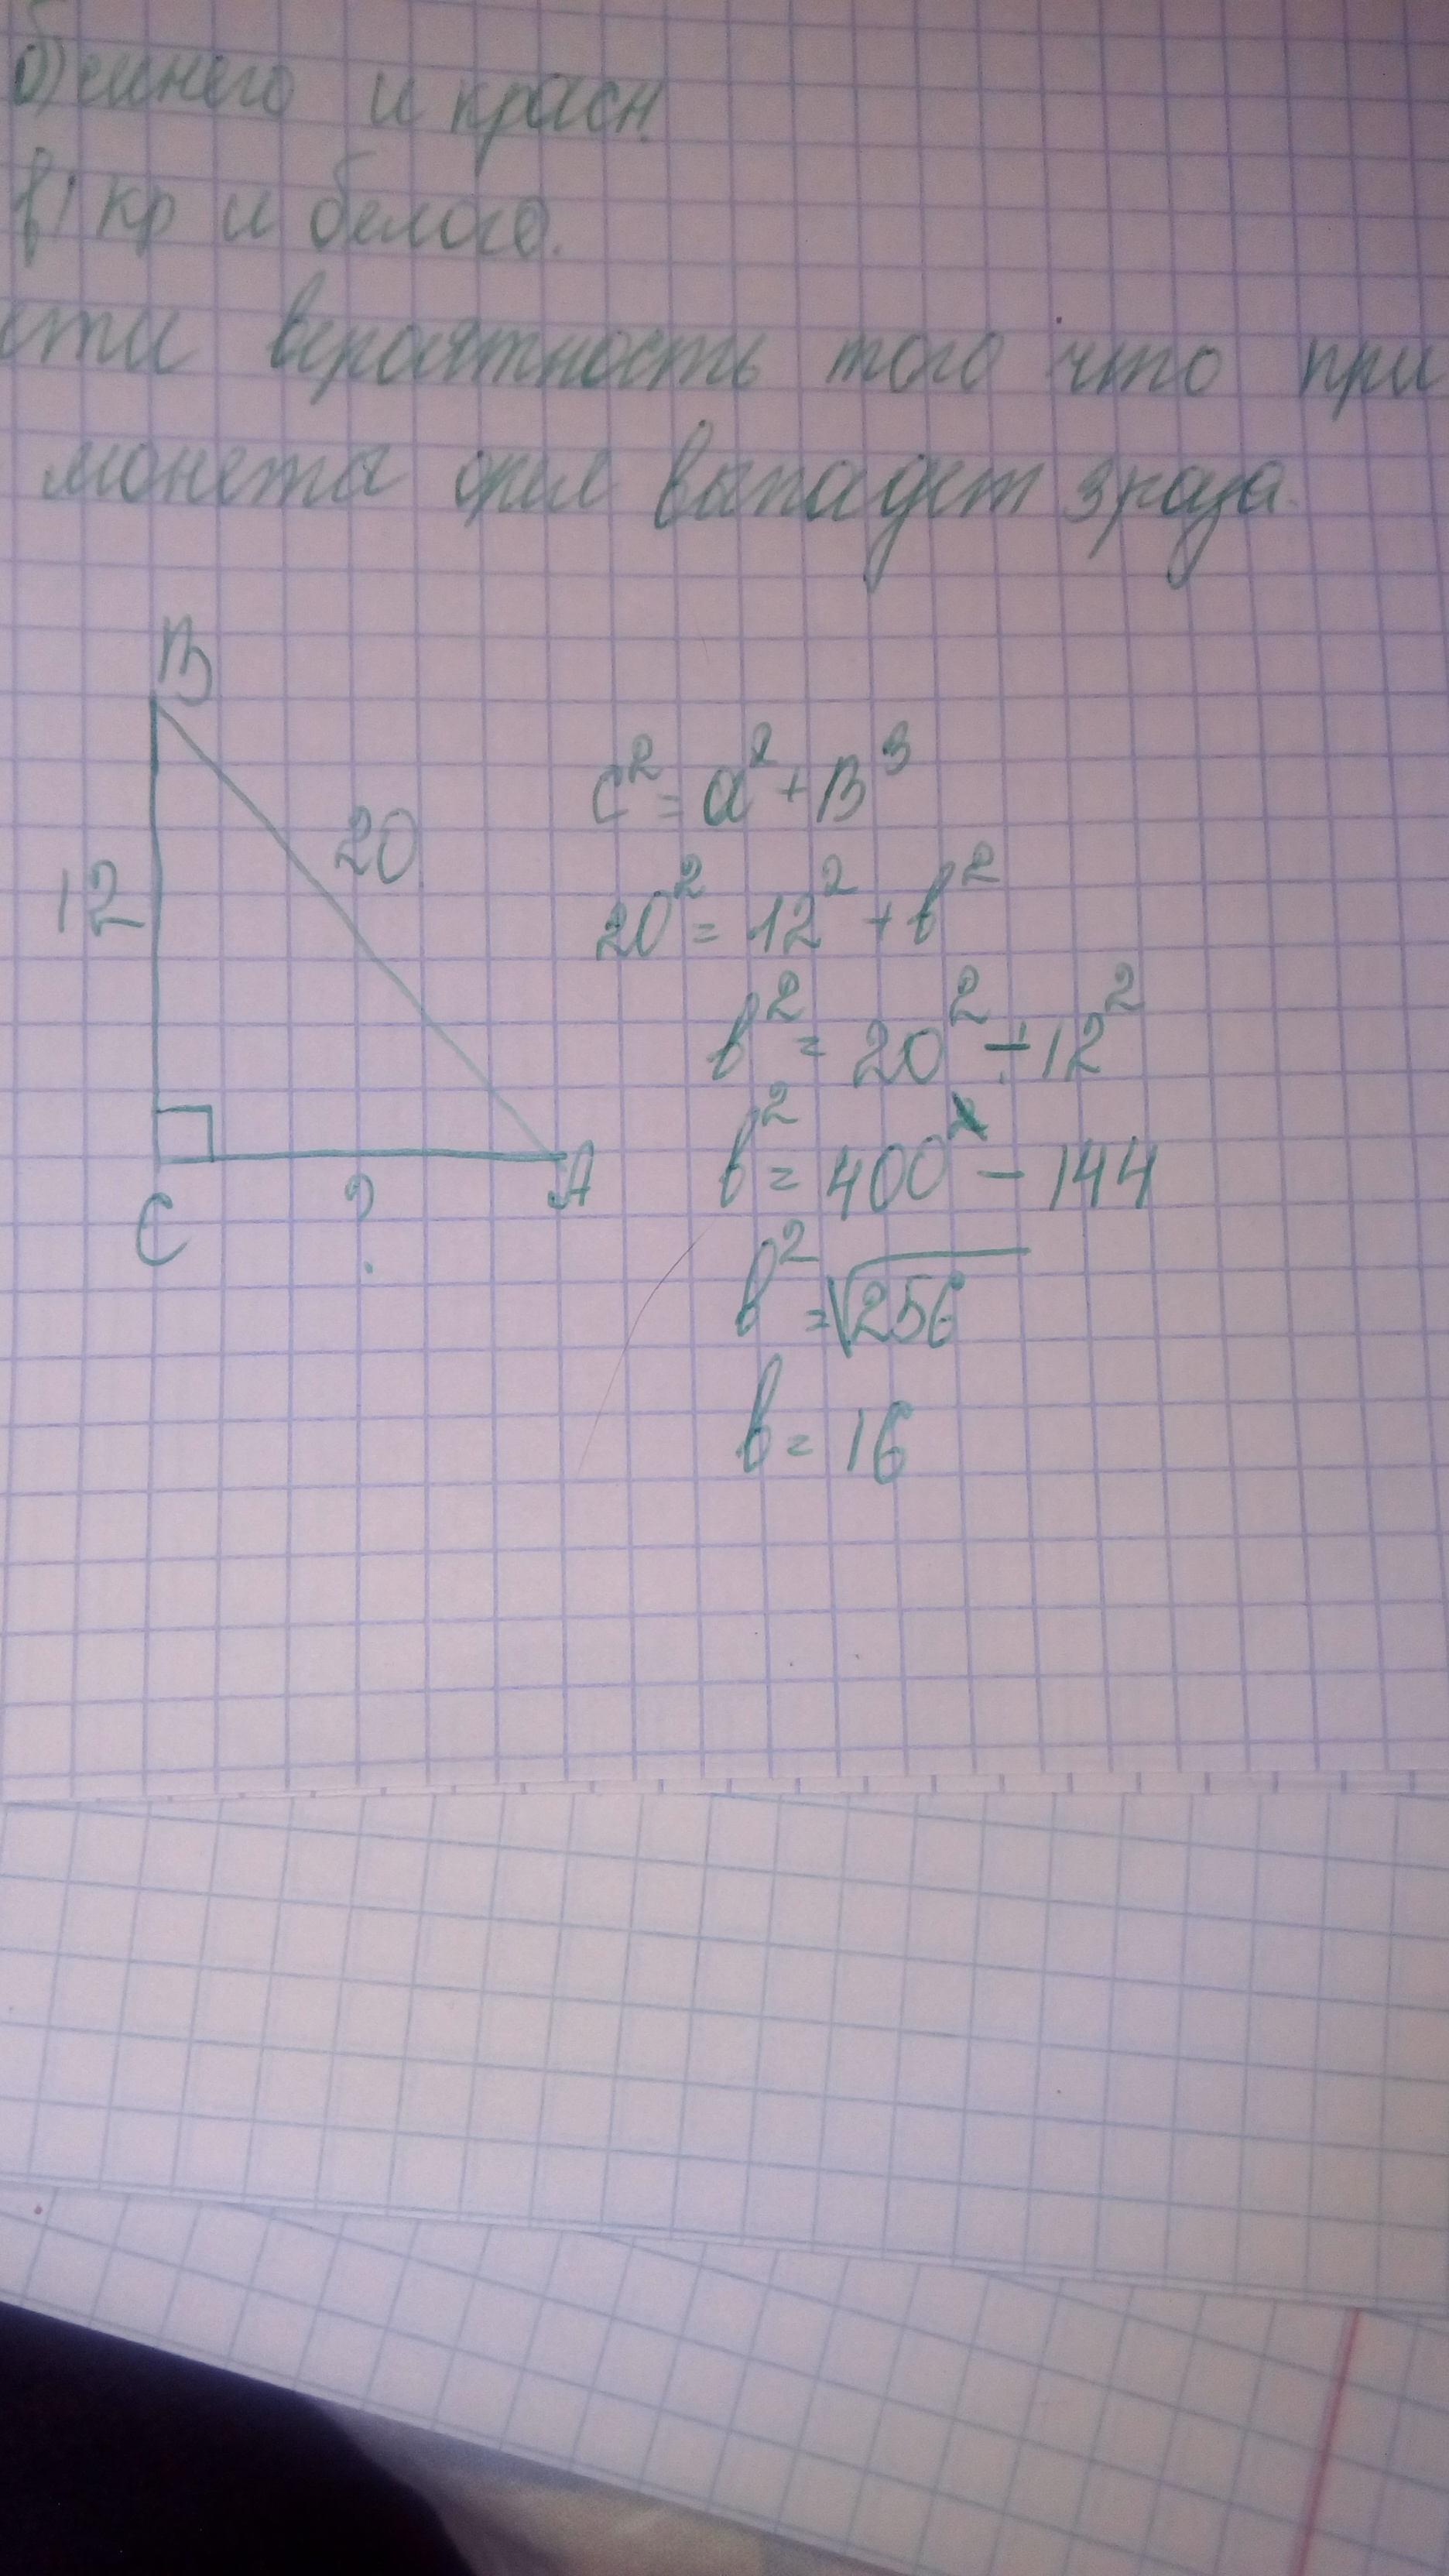 б) синего и красн.
в) кр и белого.
сти вероятность того что при
монета орел выпадет 3 раза.
B
12
20
C
?
A
c² = a² + B³
20² = 12² + b²
b² = 20² - 12²
b² = 400 - 144
b² = √256
b = 16